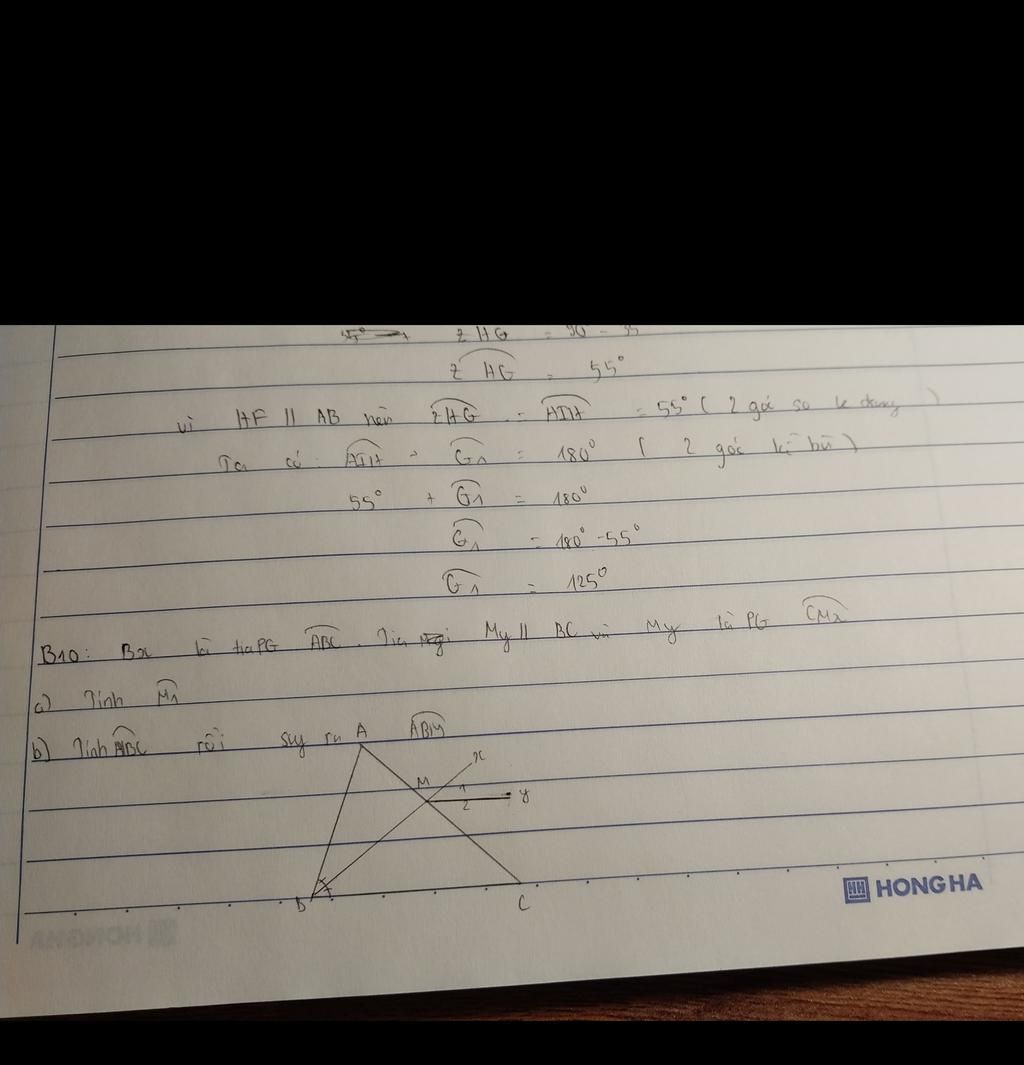 Z HG = 90 - 35
Z HG = 55°
vì HF // AB nên ZHG = AIH = 55° ( 2 góc so le trong )
Ta có : AIH + G1 = 180° ( 2 góc kề bù )
55° + G1 = 180°
G1 = 180° - 55°
G1 = 125°
B10: Bx là tia PG ABC. Tia My // BC và My là PG CMx
a) Tính M1
b) Tính ABC rồi suy ra ABM
A
x
M
1
2
y
B
C
HONG HA